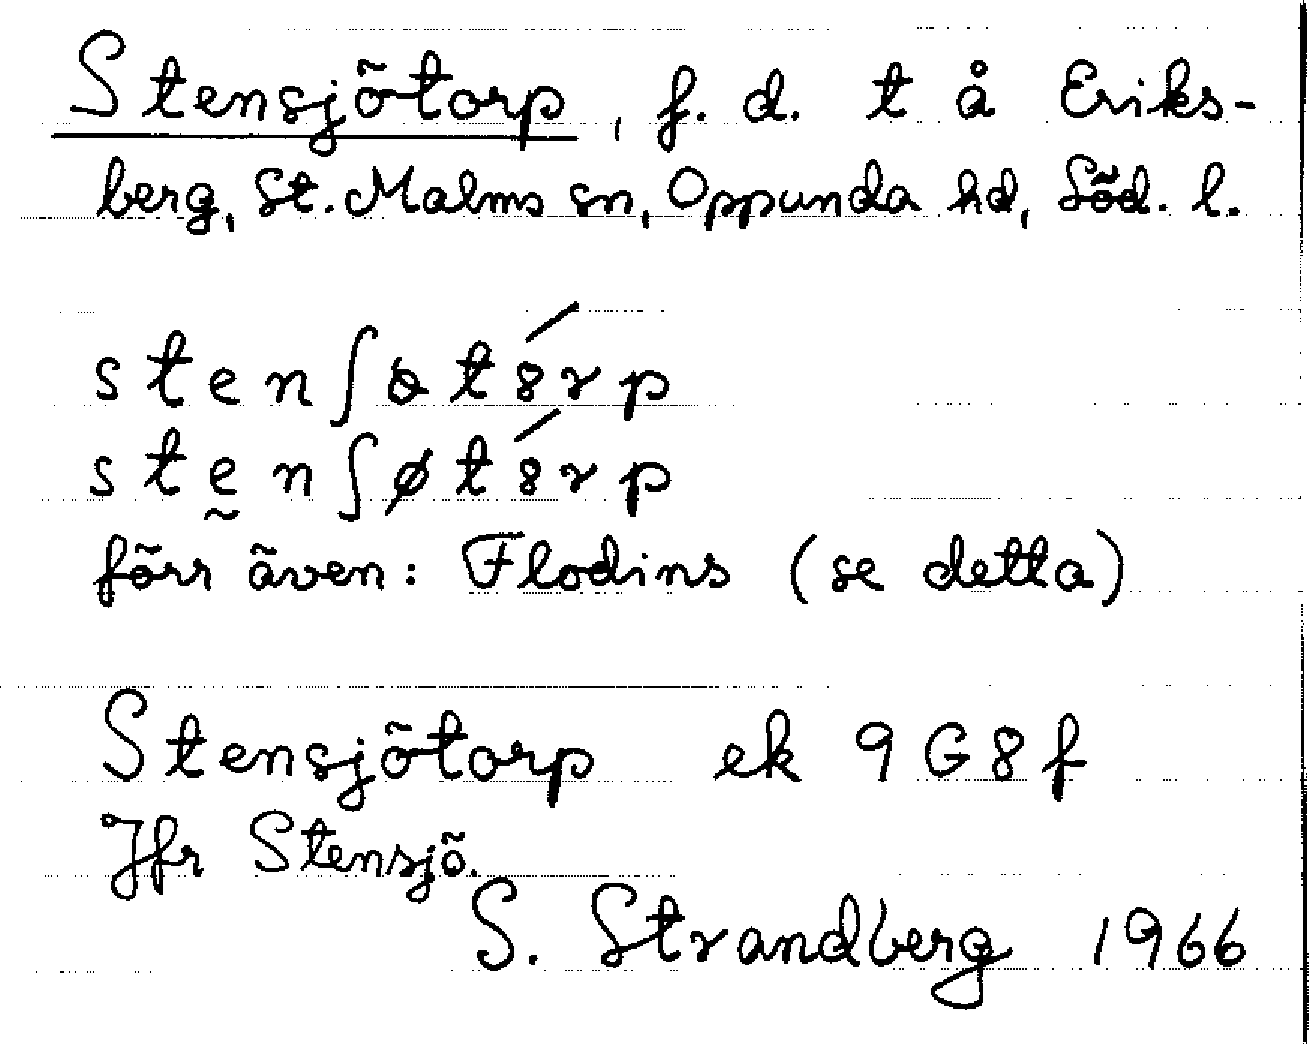 Stensjötorp, f. d. t å Eriks-
berg, St. Malms sn, Oppunda hd, Söd. l.
förr även: Flodins (se detta)
Stensjötorp ek 9G8f
Jfr Stensjö.
S. Strandberg 1966